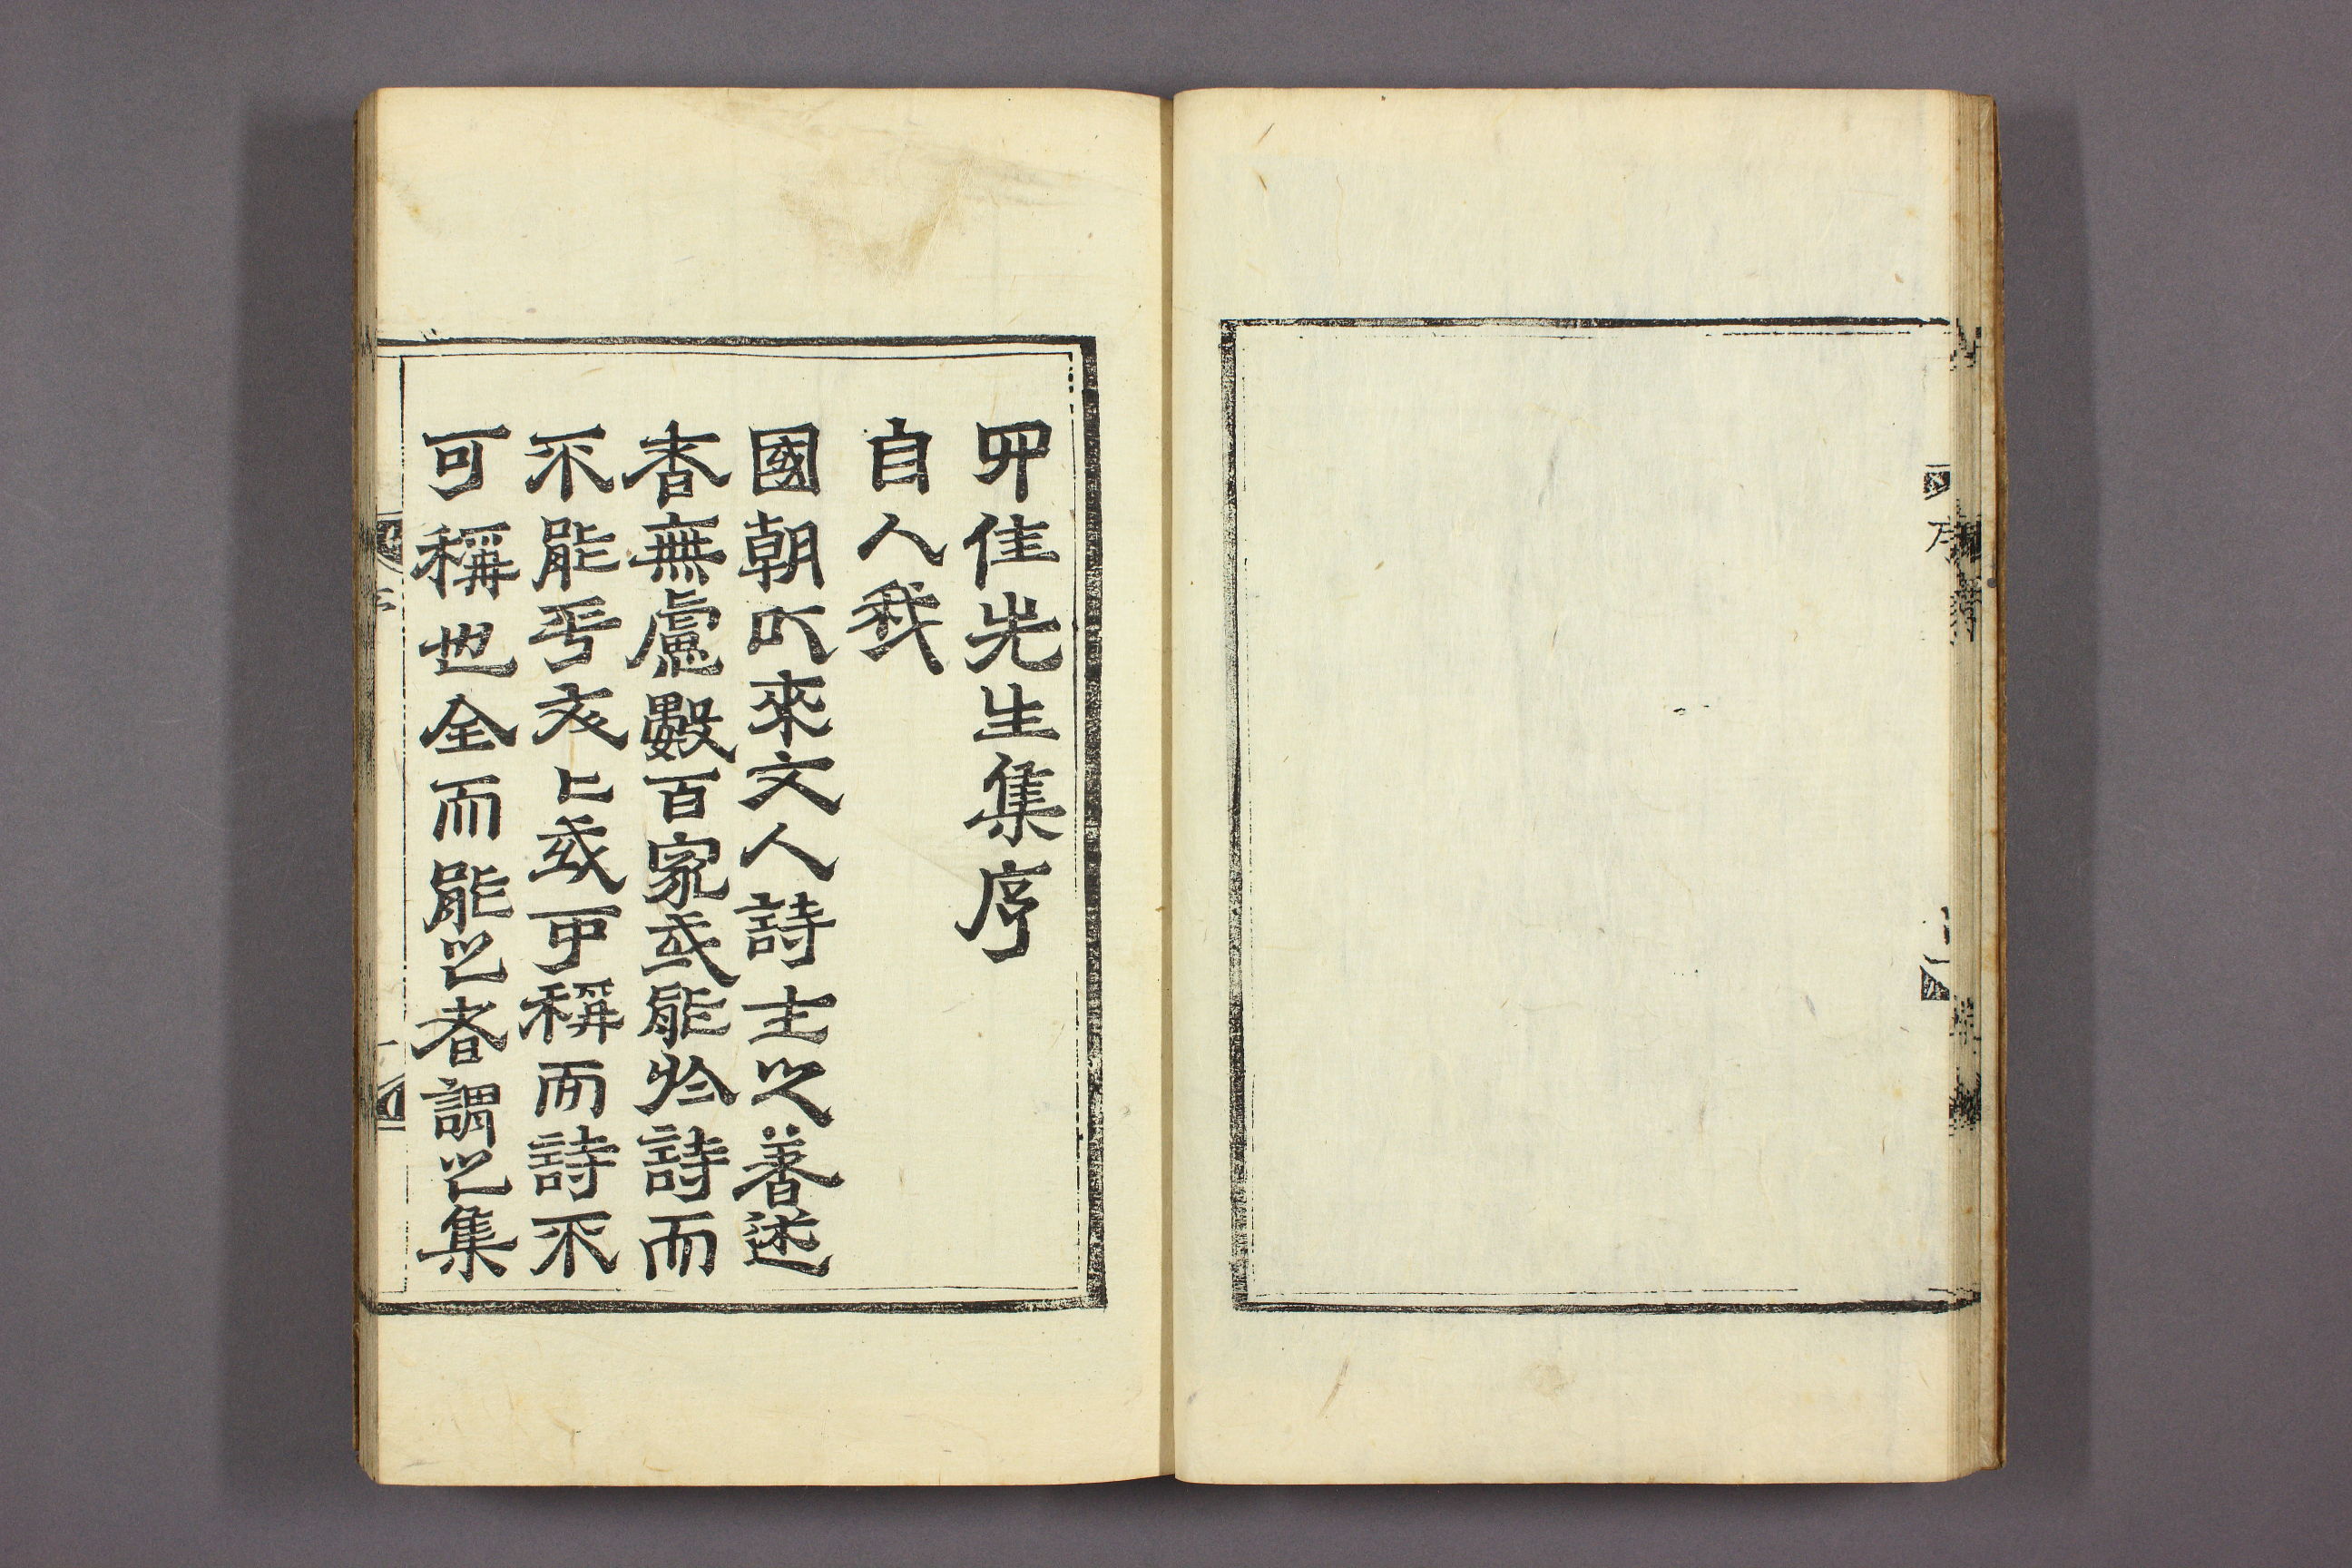 四佳先生集序
自入我
國朝以來文人詩士之善述
者無慮數百家或能於詩而
不能乎文〻或可稱而詩不
可稱也全而能之者謂之集